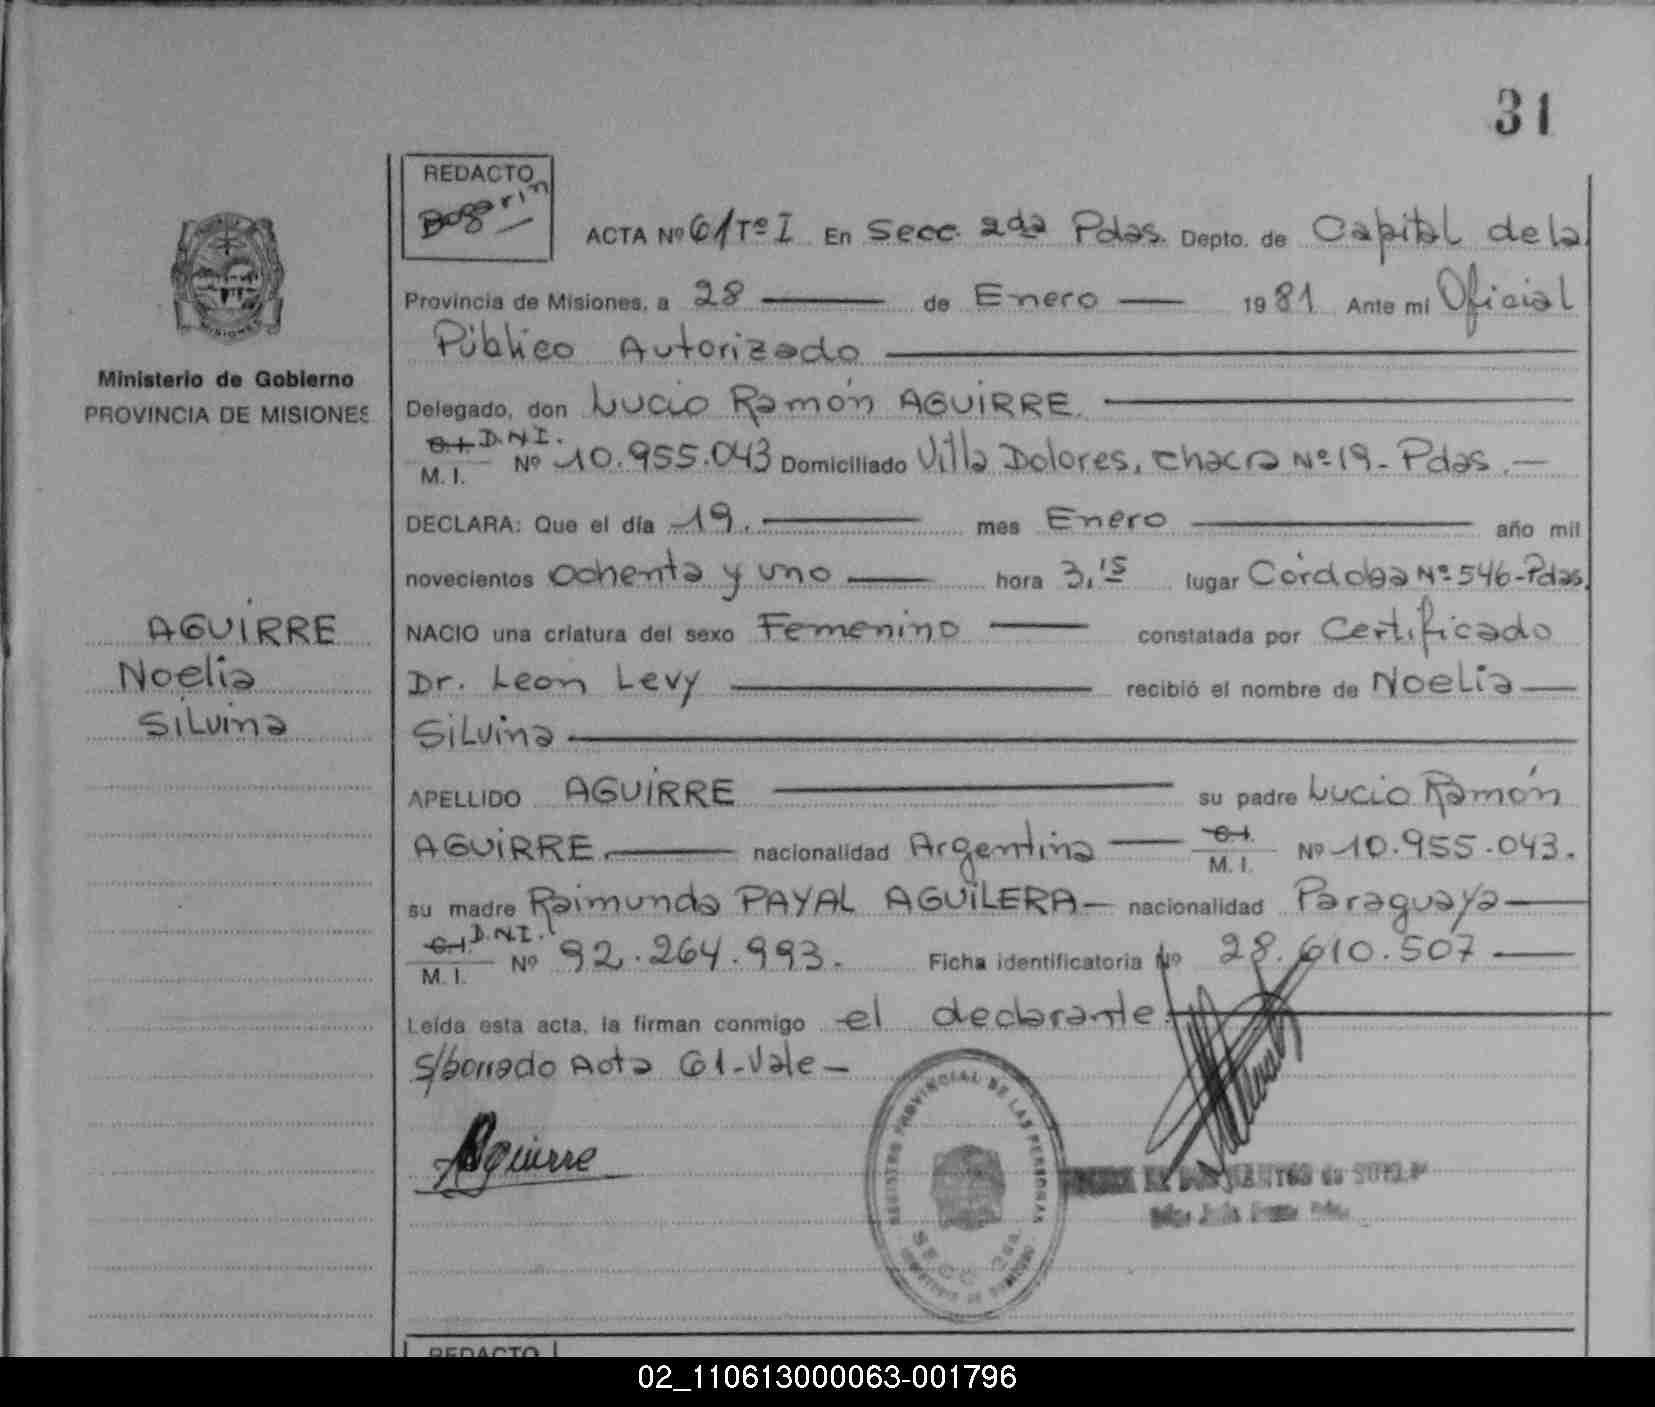 31
REDACTO
ACTA Nº 61 Tº I En Secc. 2da Pdas. Depto. de Capital de la
Provincia de Misiones, a 28 de Enero 1981 Ante mi Oficial
Público Autorizado
Ministerio de Gobierno
PROVINCIA DE MISIONES
Delegado, don Lucio Ramón AGUIRRE.
C.I. D.N.I. M.I. Nº 10.955.043 Domiciliado Villa Dolores, chacra Nº 19 - Pdas. -
DECLARA: Que el día 19. mes Enero año mil
novecientos ochenta y uno hora 3,15 lugar Córdoba Nº 546 - Pdas.
AGUIRRE
Noelia
Silvina
NACIO una criatura del sexo Femenino constatada por Certificado
Dr. Leon Levy recibió el nombre de Noelia
Silvina
APELLIDO AGUIRRE su padre Lucio Ramón
AGUIRRE. nacionalidad Argentina C.I. M.I. Nº 10.955.043.
su madre Raimunda PAYAL AGUILERA - nacionalidad Paraguaya
C.I. D.N.I. M.I. Nº 92.264.993. Ficha identificatoria Nº 28.610.507
Leída esta acta, la firman conmigo el declarante.
S/borrado Acta 61 - Vale -
Aguirre
REGISTRO PROVINCIAL DE LAS PERSONAS
SECC. 2da.
REDACTO
02_110613000063-001796